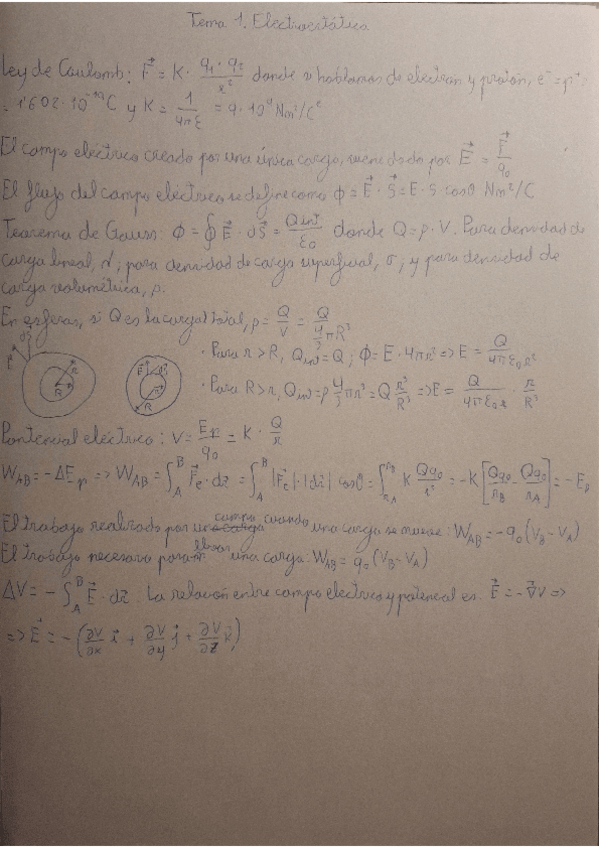 Tema 1. Electroestática
Ley de Coulomb: F⃗ = K · q₁ · q₂ / r² donde si hablamos de electrón y protón, e⁻ = p⁺ =
= 1'602 · 10⁻¹⁹ C y K = 1 / 4πε = 9 · 10⁹ Nm²/C²
El campo eléctrico creado por una única carga, viene dado por E⃗ = F⃗ / q₀
El flujo del campo eléctrico se define como ϕ = E⃗ · S⃗ = E · S · cosθ Nm²/C
Teorema de Gauss: ϕ = ∮ E⃗ · dS⃗ = Qint / ε₀ donde Q = ρ · V. Para densidad de
carga lineal, λ; para densidad de carga superficial, σ; y para densidad de
carga volumétrica, ρ.
En esferas, si Q es la carga total, ρ = Q / V = Q / (4/3 πR³)
· Para r > R, Qint = Q; ϕ = E · 4πr² => E = Q / 4πε₀r²
· Para R > r, Qint = ρ 4/3 πr³ = Q r³/R³ => E = Q / 4πε₀ r / R³
R r
R r
Pontencial eléctrico: V = Ep / q₀ = K · Q / r
W_AB = -ΔEp => W_AB = ∫_A^B F⃗e · dr⃗ = ∫_A^B |F⃗e| · |dr⃗| cosθ = ∫_rA^rB K Qq₀ / r² = -K [Qq₀ / r_B - Qq₀ / r_A] = -Ep
El trabajo realizado por un campo cuando una carga se mueve: W_AB = -q₀ (V_B - V_A)
El trabajo necesario para llevar una carga: W_AB = q₀ (V_B - V_A)
ΔV = -∫_A^B E⃗ · dr⃗. La relación entre campo eléctrico y potencial es: E⃗ = -∇⃗V =>
=> E⃗ = -(∂V/∂x i⃗ + ∂V/∂y j⃗ + ∂V/∂z k⃗)